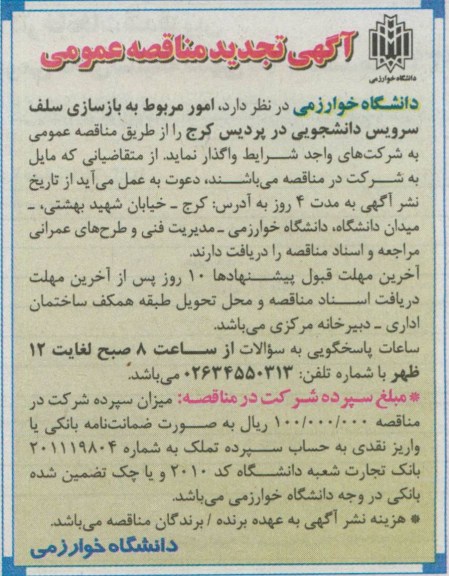 آگهی تجدید مناقصه عمومی
دانشگاه خوارزمی
دانشگاه خوارزمی در نظر دارد، امور مربوط به بازسازی سلف
سرویس دانشجویی در پردیس کرج را از طریق مناقصه عمومی
به شرکت‌های واجد شرایط واگذار نماید. از متقاضیانی که مایل
به شرکت در مناقصه می‌باشند، دعوت به عمل می‌آید از تاریخ
نشر آگهی به مدت ۴ روز به آدرس: کرج ـ خیابان شهید بهشتی، ـ
میدان دانشگاه، دانشگاه خوارزمی ـ مدیریت فنی و طرح‌های عمرانی
مراجعه و اسناد مناقصه را دریافت دارند.
آخرین مهلت قبول پیشنهادها ۱۰ روز پس از آخرین مهلت
دریافت اسناد مناقصه و محل تحویل طبقه همکف ساختمان
اداری ـ دبیرخانه مرکزی می‌باشد.
ساعات پاسخگویی به سؤالات از ساعت ۸ صبح لغایت ۱۲
ظهر با شماره تلفن: ۰۲۶۳۴۵۵۰۳۱۳ می‌باشد.
* مبلغ سپرده شرکت در مناقصه: میزان سپرده شرکت در
مناقصه ۱۰۰/۰۰۰/۰۰۰ ریال به صورت ضمانت‌نامه بانکی یا
واریز نقدی به حساب سپرده تملک به شماره ۲۰۱۱۱۹۸۰۴
بانک تجارت شعبه دانشگاه کد ۲۰۱۰ و یا چک تضمین شده
بانکی در وجه دانشگاه خوارزمی می‌باشد.
* هزینه نشر آگهی به عهده برنده / برندگان مناقصه می‌باشد.
دانشگاه خوارزمی